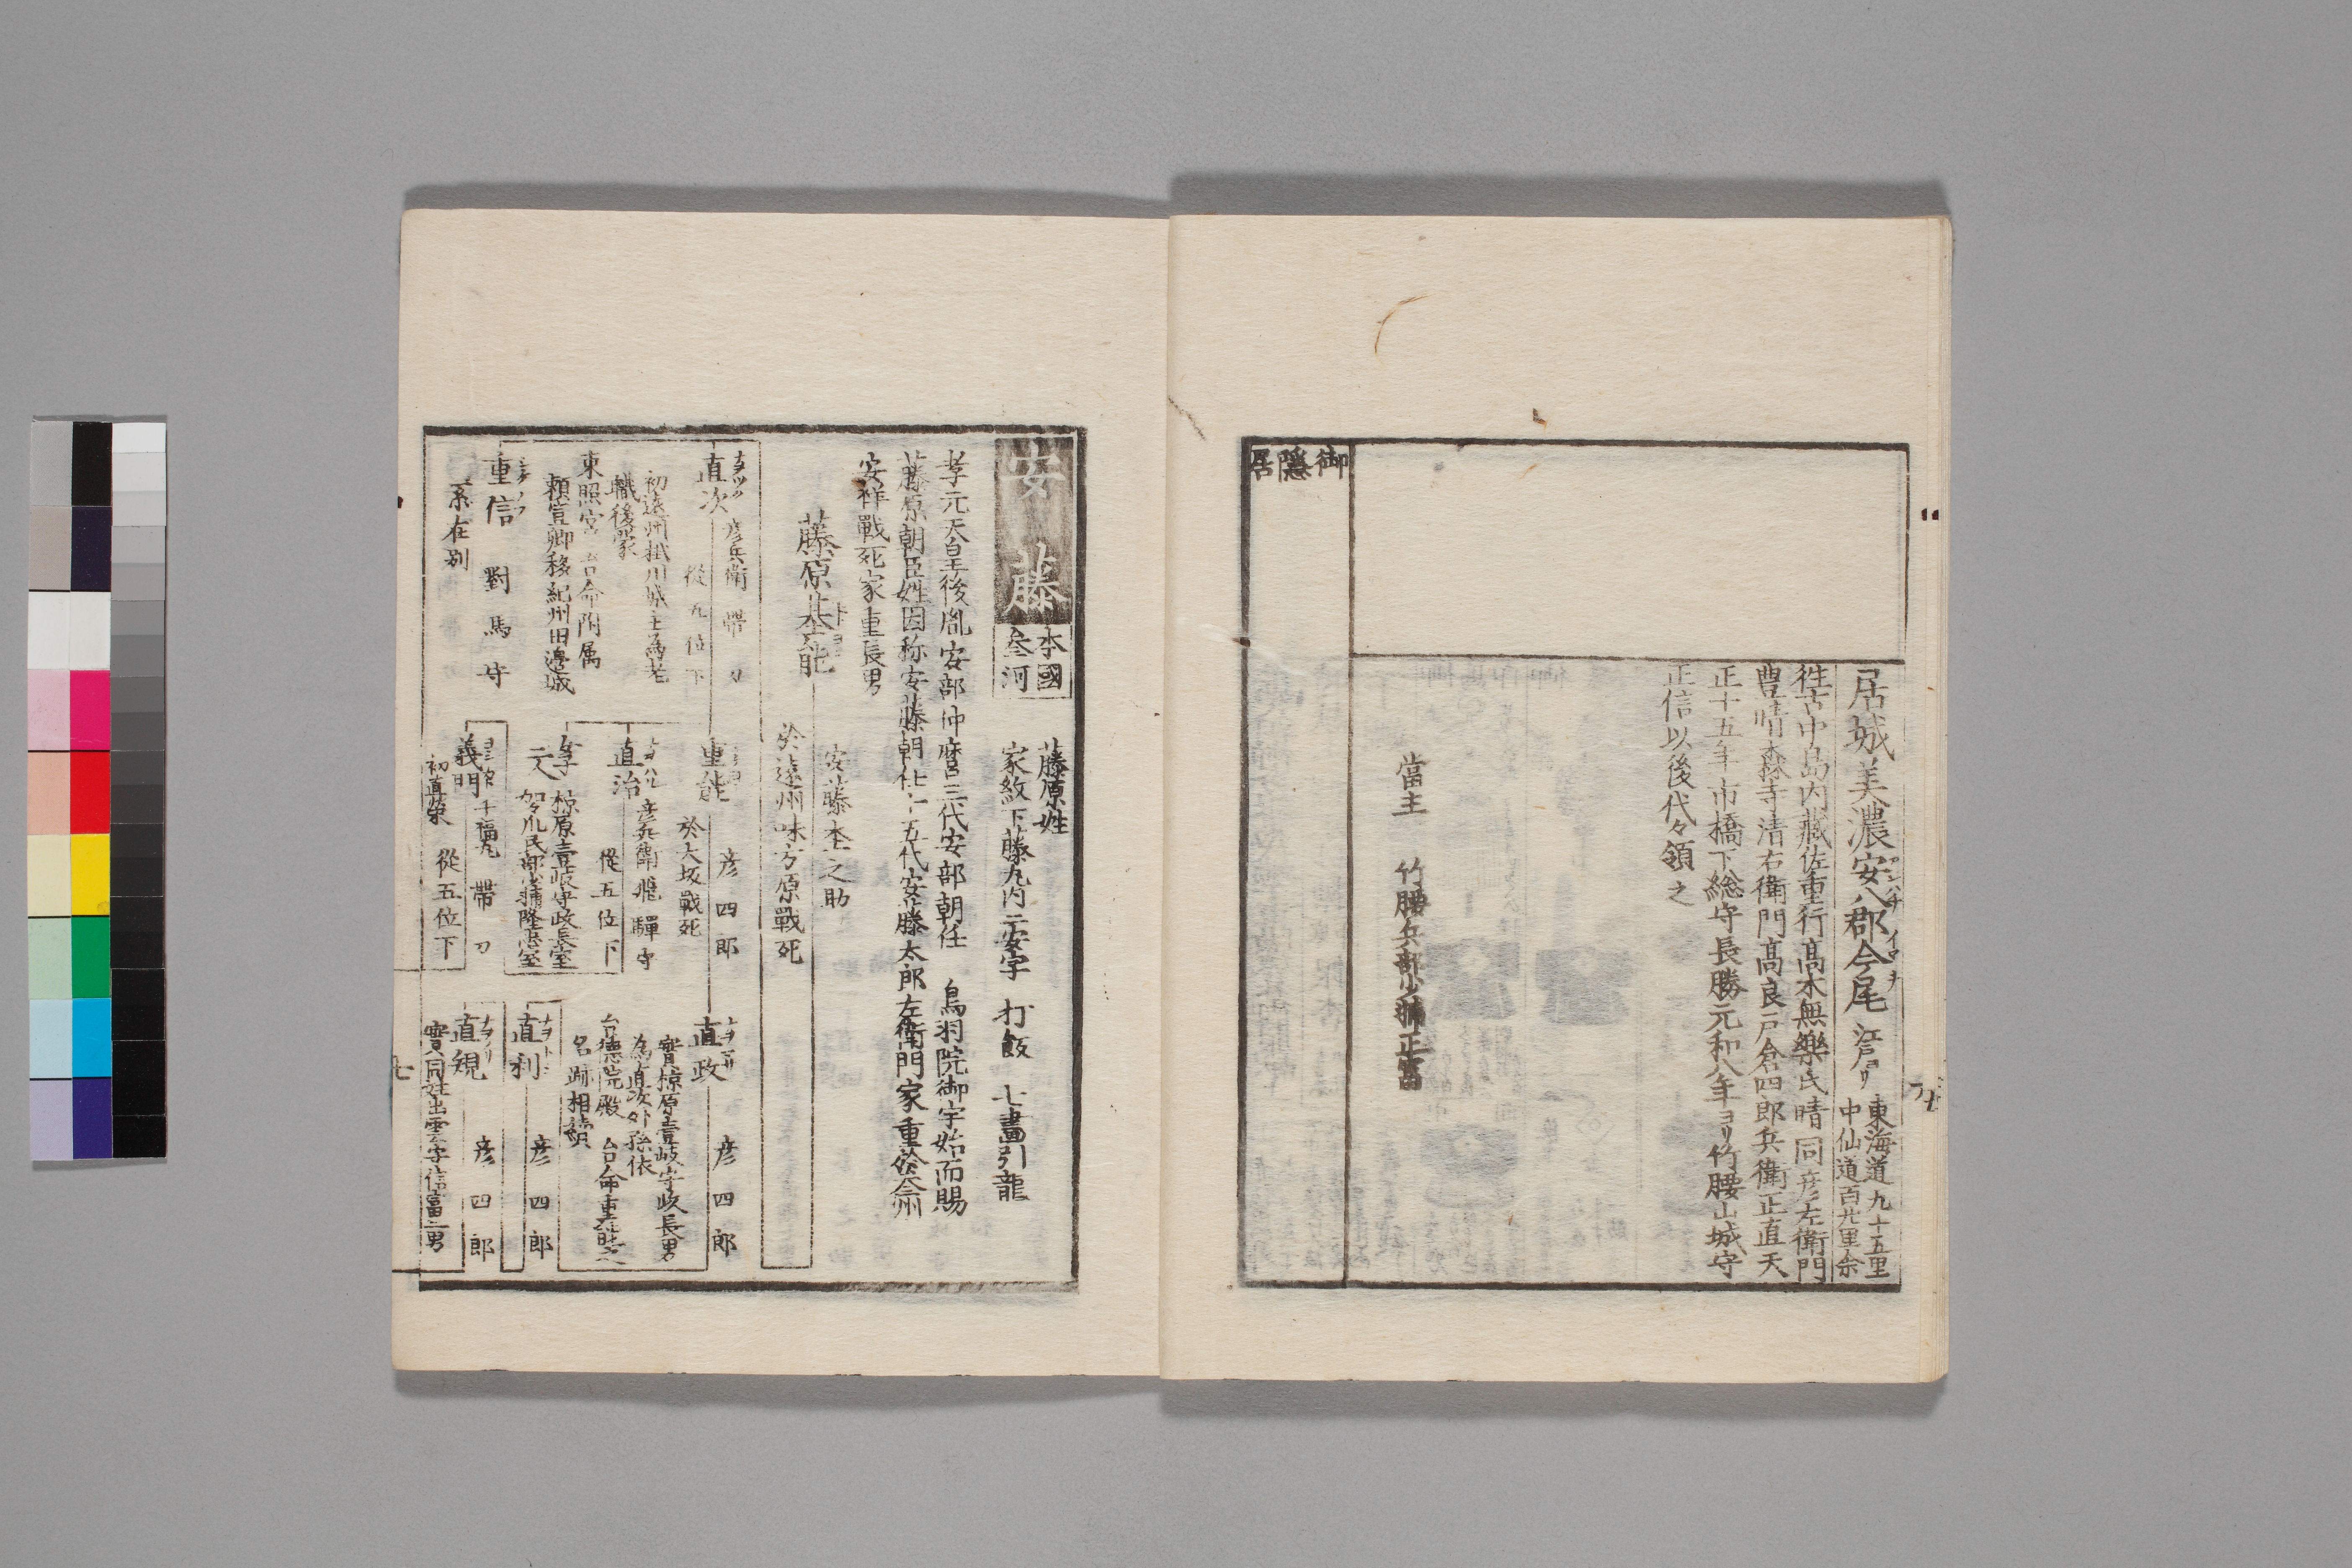 居城美濃安八郡今尾 江戸ヨリ 東海道九十五里
中仙道百廿里余
アンハチ イマヲ
徃古中島内藏佐重行髙木無樂民晴同彦左衛門
豊晴森寺清右衛門髙良戸倉四郎兵衛正直天
正十五年市橋下総守長勝元和八年ヨリ竹腰山城守
正信以後代々領之
當主 竹腰兵部少輔正富
御隱居
安藤
本國
參河
藤原姓
家紋下藤丸内ニ安字 打飯 七畵引龍
孝元天皇後胤安部仲麿三代安部朝任 鳥羽院御宇始而賜
藤原朝臣姓因称安藤朝任十五代安藤太郎左衛門家重於参州
安祥戰死家重長男
藤原基能
安藤杢之助
於遠州味方原戰死
直次
彦兵衛 帶刀
從五位下
初遠州掛川城主爲老
職後蒙
東照宮 台命附属
頼宣卿移紀州田邊城
重信 對馬守
系在別
重能 彦四郎
於大坂戰死
直治 彦兵衛 飛驒守
從五位下
女子 椋原壹岐守政長室
二人 加々爪民部少輔隆忠室
義門 千福丸 帶刀
初直榮 從五位下
直政 彦四郎
實椋原壹岐守政長男
為直次外孫依
台德院殿 台命重能之
名跡相續
直利 彦四郎
直規 彦四郎
實同姓出雲守信富二男
七